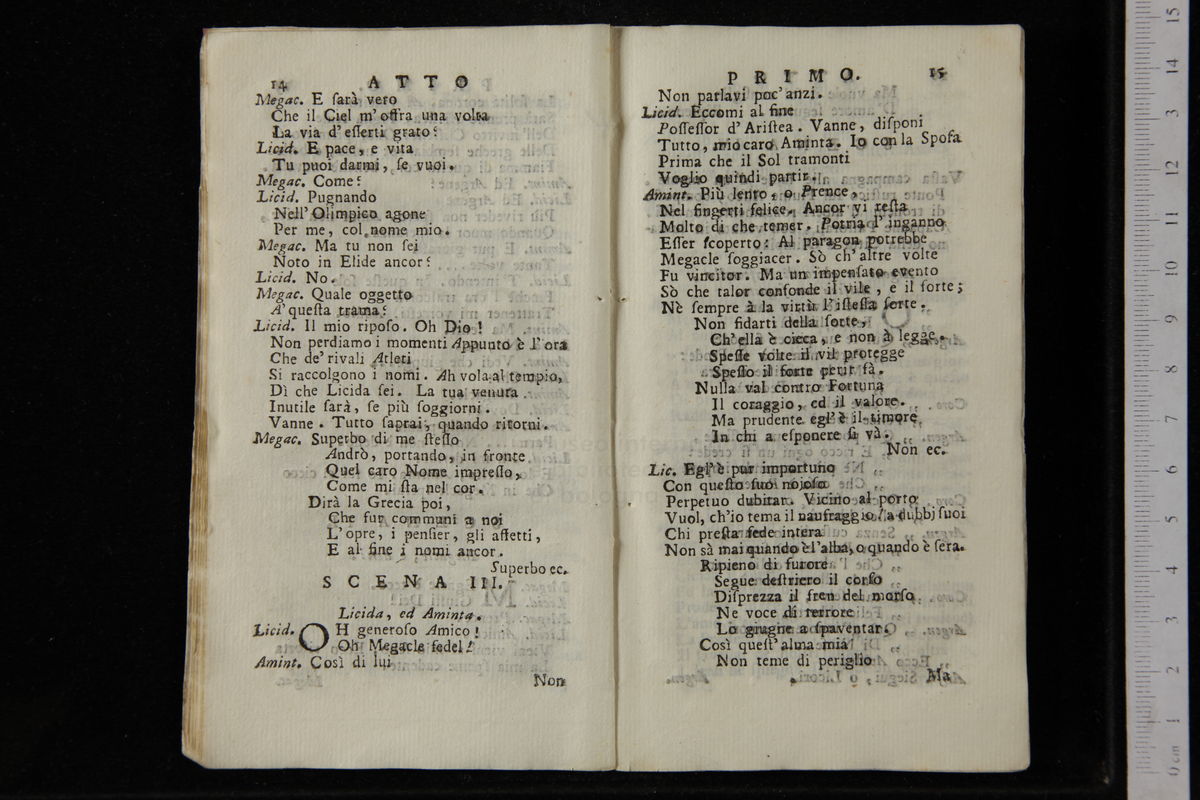 14 ATTO
Megac. E ſarà vero
Che il Ciel m'offra una volta
La via d'eſſerti grato?
Licid. E pace, e vita
Tu puoi darmi, ſe vuoi.
Megac. Come?
Licid. Pugnando
Nell'Olimpico agone
Per me, col nome mio.
Megac. Ma tu non ſei
Noto in Elide ancor?
Licid. No.
Megac. Quale oggetto
A' queſta trama?
Licid. Il mio ripoſo. Oh Dio!
Non perdiamo i momenti Appunto è l'ora
Che de' rivali Atleti
Si raccolgono i nomi. Ah vola al tempio,
Dì che Licida ſei. La tua venuta
Inutile ſarà, ſe più ſoggiorni.
Vanne. Tutto ſaprai, quando ritorni.
Megac. Superbo di me ſteſſo
Andrò, portando, in fronte
Quel caro Nome impreſſo,
Come mi ſta nel cor.
Dirà la Grecia poi,
Che fur communi a noi
L'opre, i penſier, gli affetti,
E al fine i nomi ancor.
Superbo ec.
SCENA III.
Licida, ed Aminta.
Licid. OH generoſo Amico!
Oh Megacle fedel!
Amint. Così di lui
Non
PRIMO. 15
Non parlavi poc'anzi.
Licid. Eccomi al fine
Poſſeſſor d'Ariſtea. Vanne, diſponi
Tutto, mio caro Aminta. Io con la Spoſa
Prima che il Sol tramonti
Voglio quindi partir.
Amint. Più lento, o Prence,
Nel fingerti felice. Ancor vi reſta
Molto di che temer. Potria l'inganno
Eſſer ſcoperto: Al paragon potrebbe
Megacle ſoggiacer. Sò ch'altre volte
Fu vincitor. Ma un impenſato evento
Sò che talor confonde il vile, e il forte;
Nè ſempre à la virtù l'iſteſſa ſorte.
Non fidarti della ſorte,
Ch'ella è cieca, e non à legge.
Speſſe volte il vil protegge
Speſſo il forte perir fà.
Nulla val contro Fortuna
Il coraggio, ed il valore.
Ma prudente egl'è il timore
In chi a eſponere ſi và.
Non ec.
Lic. Egl'è pur importuno
Con queſto ſuo nojoſo
Perpetuo dubitar. Vicino al porto
Vuol, ch'io tema il naufraggio? a dubbj ſuoi
Chi preſta fede intera
Non sà mai quando è l'alba, o quando è ſera.
Ripieno di furore
Segue deſtriero il corſo
Diſprezza il fren del morſo
Ne voce di terrore
Lo giugne a ſpaventar.
Così queſt'alma mia
Non teme di periglio
Ma